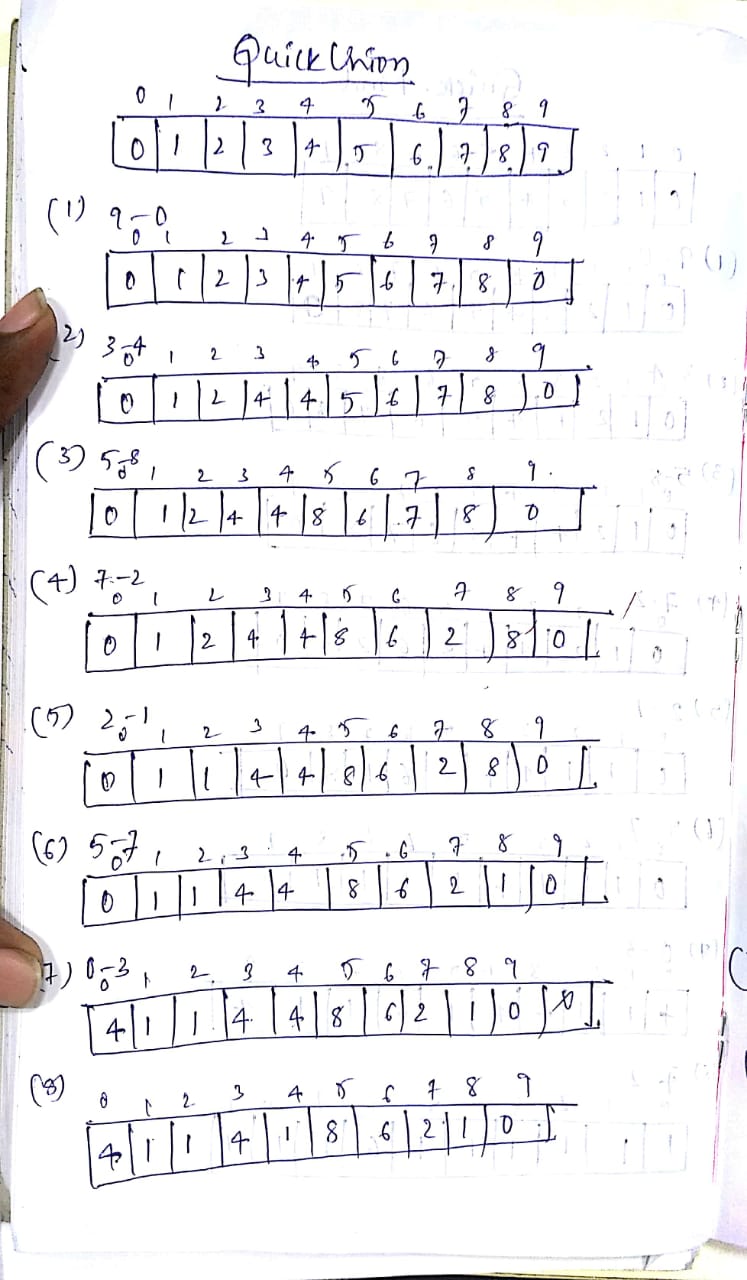 Quick Union
0 1 2 3 4 5 6 7 8 9
0 1 2 3 4 5 6 7 8 9
(1) 9-0
0 1 2 3 4 5 6 7 8 9
0 1 2 3 4 5 6 7 8 0
2) 3-4
0 1 2 3 4 5 6 7 8 9
0 1 2 4 4 5 6 7 8 0
(3) 5-8
0 1 2 3 4 5 6 7 8 9
0 1 2 4 4 8 6 7 8 0
(4) 7-2
0 1 2 3 4 5 6 7 8 9
0 1 2 4 4 8 6 2 8 0
(5) 2-1
0 1 2 3 4 5 6 7 8 9
0 1 1 4 4 8 6 2 8 0
(6) 5-7
0 1 2 3 4 5 6 7 8 9
0 1 1 4 4 8 6 2 1 0
7) 0-3
0 1 2 3 4 5 6 7 8 9
4 1 1 4 4 8 6 2 1 0
(8)
0 1 2 3 4 5 6 7 8 9
4 1 1 4 1 8 6 2 1 0